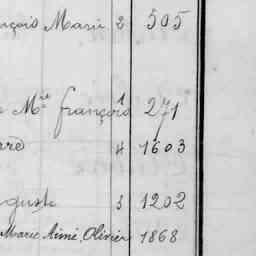 nçois Marie 2 505
Mce françois 1 271
4 1603
guste 3 1202
Marie Aimé Olivier 1868